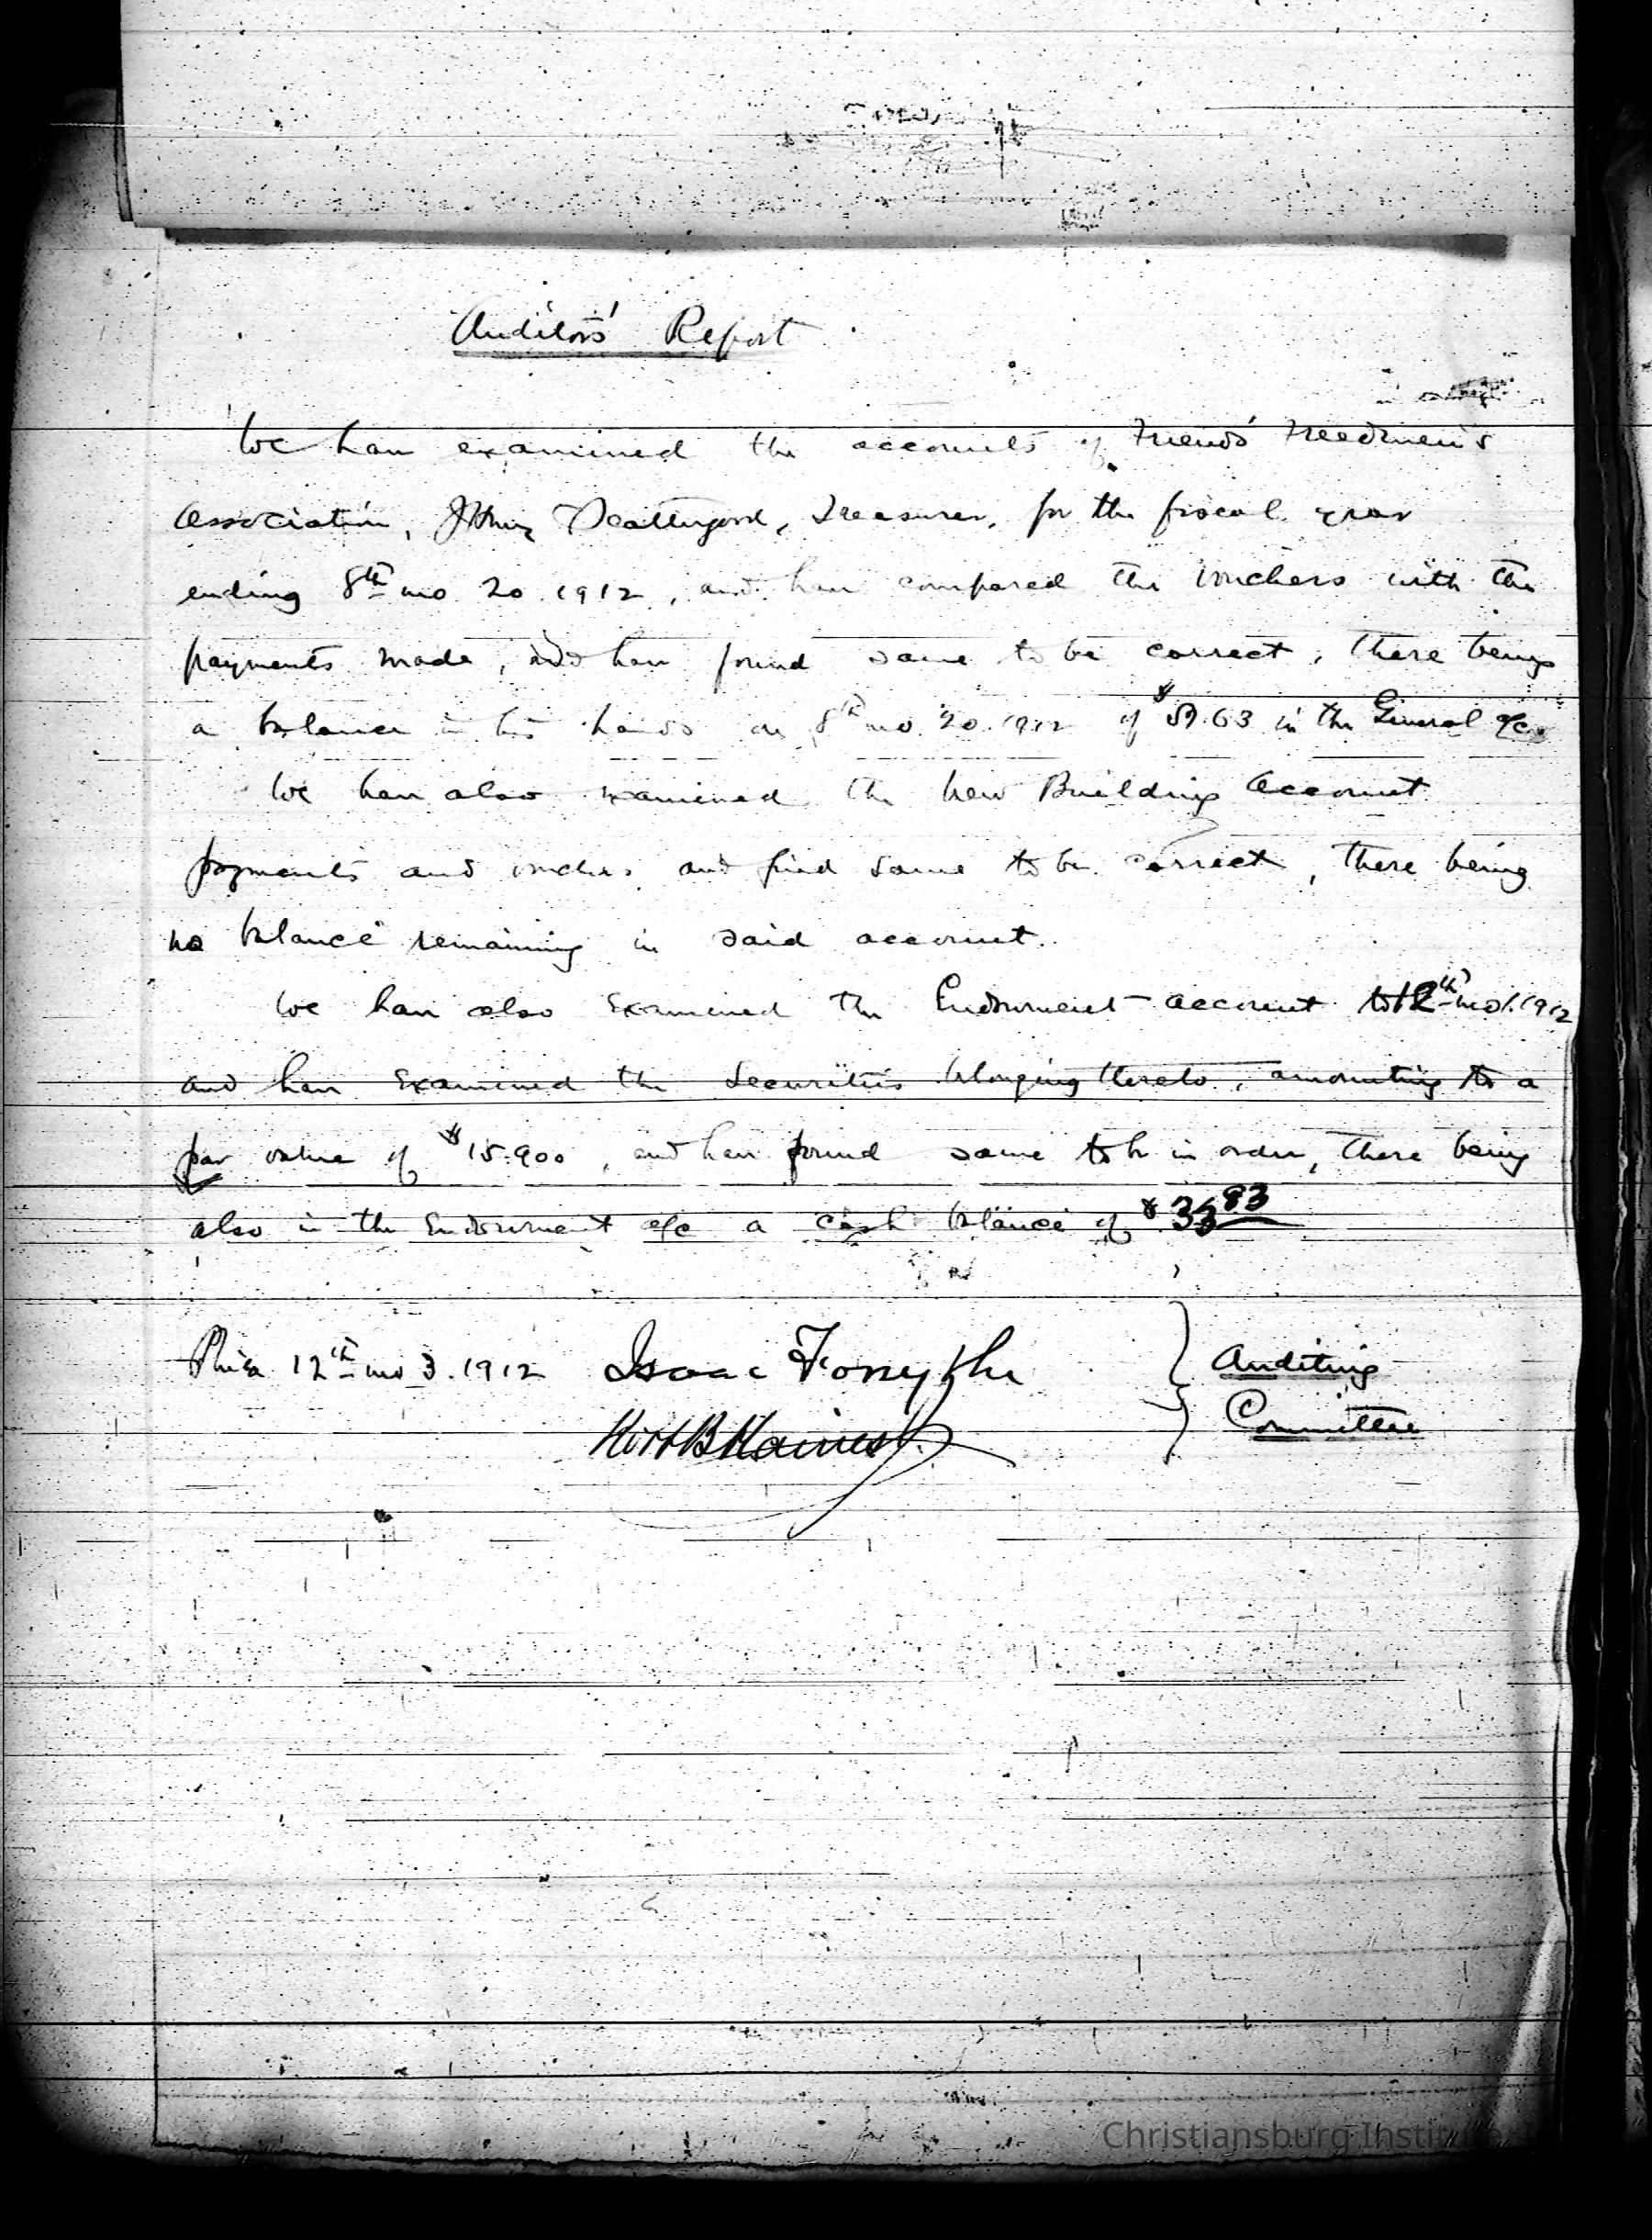 Auditors' Report
We have examined the accounts of Friends' Freedmen's
Association, J Henry Scattergood, Treasurer, for the fiscal year
ending 8th mo 20. 1912, and have compared the vouchers with the
payments made, and have found same to be correct, there being
a balance in his hands on 8th mo. 20. 1912 of $ .63 in the General a/c.
We have also examined the New Building Account
payments and vouchers and find same to be correct, there being
no balance remaining in said account.
We have also examined the Endowment account to 12th mo 1. 1912
and have examined the Securities belonging thereto, amounting to a
par value of $15.900, and have found same to be in order, there being
also in the Endowment a/c a cash balance of $ 83
Phila 12th mo 3. 1912 Isaac Forsythe
B Haines
Auditing
Committee
Christiansburg Institute